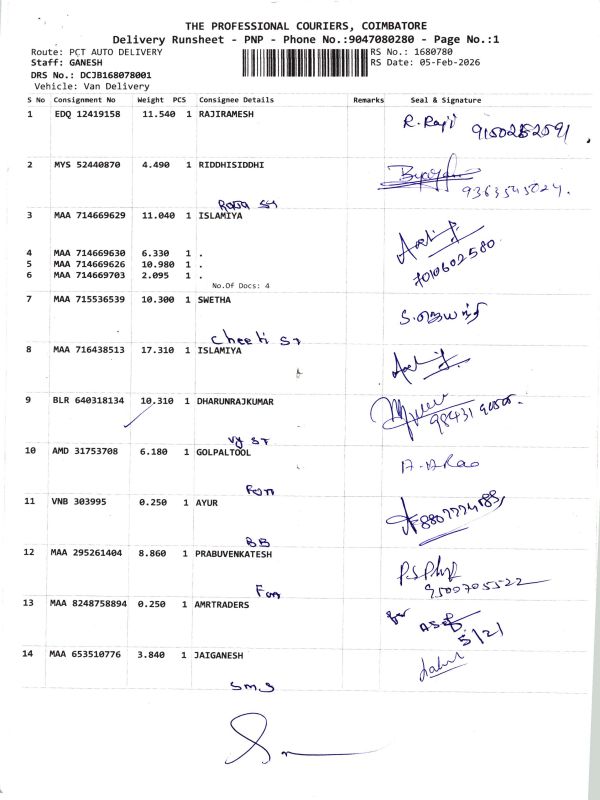 THE PROFESSIONAL COURIERS, COIMBATORE
Delivery Runsheet - PNP - Phone No.:9047080280 - Page No.:1
Route: PCT AUTO DELIVERY RS No.: 1680780
Staff: GANESH RS Date: 05-Feb-2026
DRS No.: DCJB168078001
Vehicle: Van Delivery
S No Consignment No Weight PCS Consignee Details Remarks Seal & Signature
1 EDQ 12419158 11.540 1 RAJIRAMESH R. Raji
2 MYS 52440870 4.490 1 RIDDHISIDDHI
3 MAA 714669629 11.040 1 ISLAMIYA
4 MAA 714669630 6.330 1 .
5 MAA 714669626 10.980 1 .
7010602580
6 MAA 714669703 2.095 1 .
No.Of Docs: 4
7 MAA 715536539 10.300 1 SWETHA
8 MAA 716438513 17.310 1 ISLAMIYA
9 BLR 640318134 10.310 1 DHARUNRAJKUMAR
Vy ST
10 AMD 31753708 6.180 1 GOLPALTOOL
11 VNB 303995 0.250 1 AYUR
BB
12 MAA 295261404 8.860 1 PRABUVENKATESH
9500705522
13 MAA 8248758894 0.250 1 AMRTRADERS
5/2/
14 MAA 653510776 3.840 1 JAIGANESH
SMS